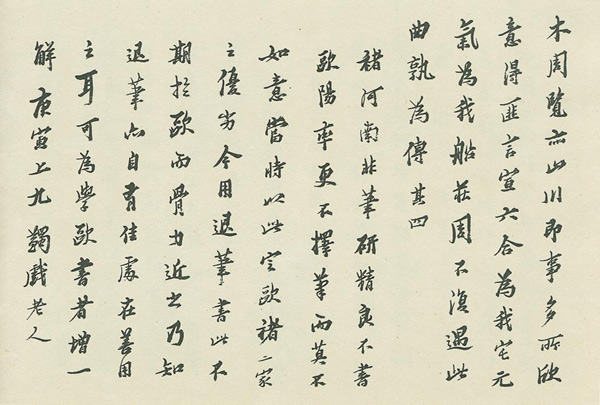 木周覽亦山川即事多所欣
意得匪言宣六合為我宅元
氣為我船莊周不復遇此
曲孰為傳其四
褚河南非筆研精良不書
歐陽率更不擇筆而莫不
如意當時以此定歐褚二家
之優劣今用退筆書此不
期於歐而骨力近之乃知
退筆亦自有佳處在善用
之耳可為學歐書者增一
解 庚寅上九 蠲戲老人